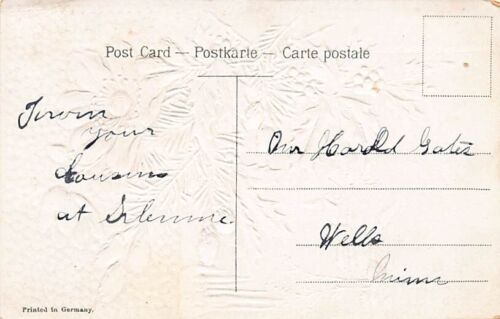 Post Card — Postkarte — Carte postale
From
your
Cousins
at
Harold Gates
Wells
Minn
Printed in Germany.